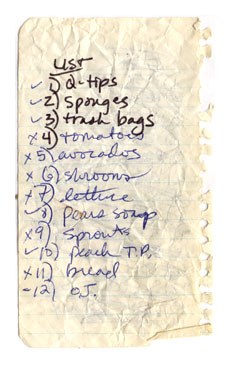 LIST
✓1) Q-tips
✓2) Sponges
✓3) trash bags
x4) tomatoes
x5) avocados
x6) shrooms
x7) lettuce
✓8) Pears soap
x9) Sprouts
✓10) peach T.P.
x11) bread
-12) O.J.